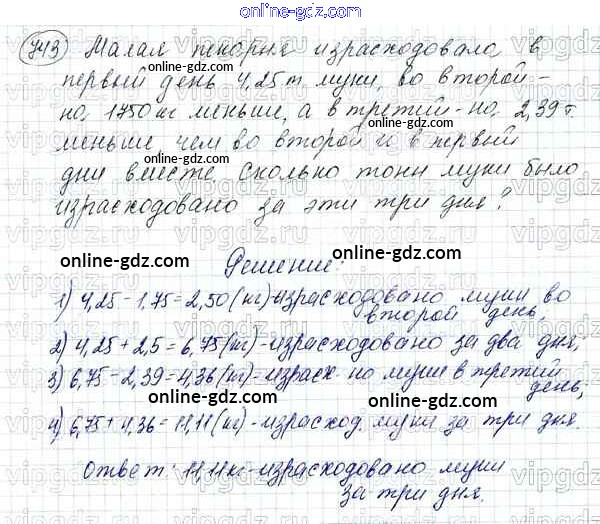 online-gdz.com
743 Малая пекарня израсходовала в
первый день 4,25 т муки, во второй -
на 1750 кг меньше, а в третий - на 2,39 т.
меньше чем во второй и в первый
дни вместе. Сколько тонн муки было
израсходовано за эти три дня?
Решение:
1) 4,25 - 1,75 = 2,50 (кг) - израсходовано муки во
второй день;
2) 4,25 + 2,5 = 6,75 (кг) - израсходовано за два дня;
3) 6,75 - 2,39 = 4,36 (кг) - израсх-но муки в третий
день;
4) 6,75 + 4,36 = 11,11 (кг) - израсход. муки за три дня.
Ответ: 11,11 кг - израсходовано муки
за три дня.